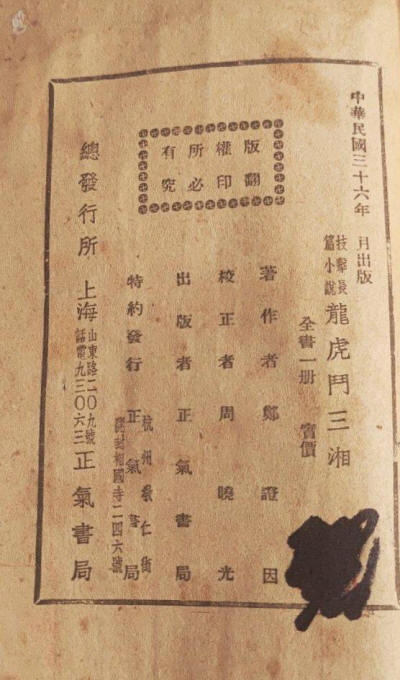 中華民國三十六年 月出版
技擊長篇小說 龍虎鬥三湘
全書一册 實價
版權所有
翻印必究
著作者 鄭證因
校正者 周曉光
出版者 正氣書局
特約發行 正氣書局
杭州 仁街
開封相國寺二四六號
總發行所 上海 正氣書局
山東路二〇九號
話電九三〇六三